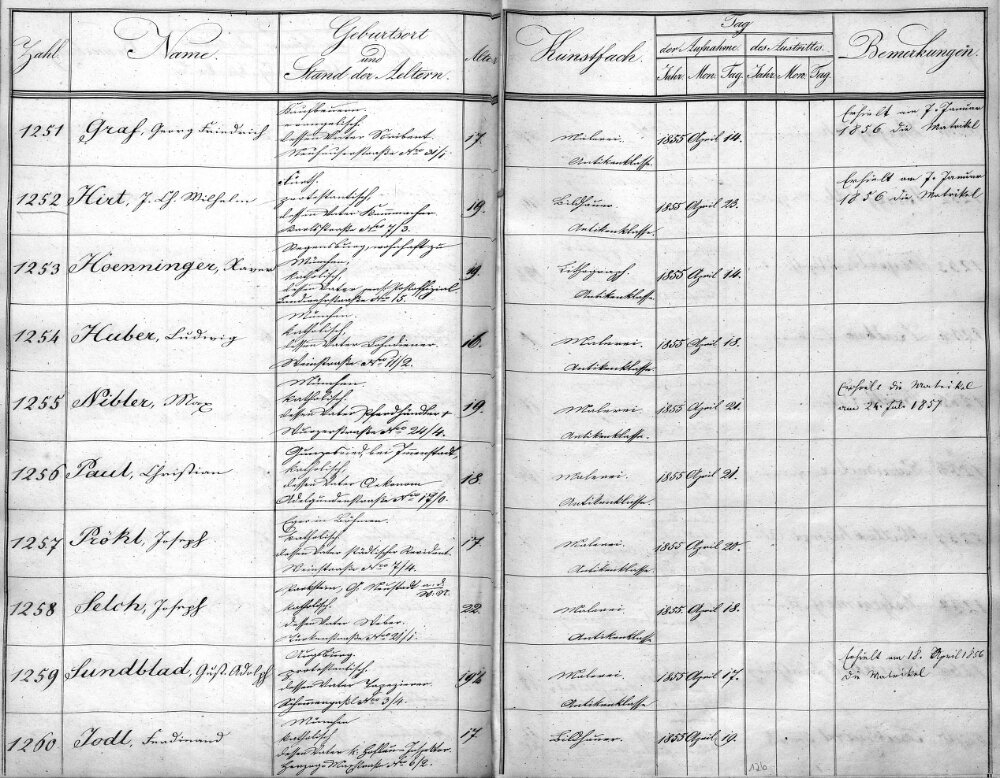 Zahl. Name. Geburtsort und Stand der Aeltern. Alter Kunstfach. Tag der Aufnahme. des Austrittes. Bemerkungen.
Jahr Mon. Tag. Jahr Mon. Tag.
1251 Graf, Georg Friedrich
evangelisch,
dessen Vater
17.
Malerei.
Antikenklasse.
1855 April 14.
Erhielt am 7. Januar
1856 die Matrikel
1252 Hirt, J. Ch. Wilhelm
Fürth,
protestantisch,
dessen Vater
Karlstraße No 7/3.
19.
Bildhauer.
Antikenklasse.
1855 April 23.
Erhielt am 7. Januar
1856 die Matrikel
1253 Hoenninger, Xaver
Regensburg, wohnhaft zu
München,
katholisch,
dessen Vater
No 15.
19.
Lithograph.
Antikenklasse.
1855 April 14.
1254 Huber, Ludwig
München.
katholisch,
dessen Vater Lohndiener.
Weinstraße No 11/2.
16.
Malerei.
Antikenklasse.
1855 April 18.
1255 Nibler, Max
München.
katholisch.
dessen Vater Pferdhändler
No 24/4.
19.
Malerei.
Antikenklasse.
1855 April 21.
Erhielt die Matrikel
am 24. Juli 1857
1256 Paul, Christian
bei Immenstadt,
katholisch,
dessen Vater Oekonom
Adelgundenstraße No 17/0.
18.
Malerei.
Antikenklasse.
1855 April 21.
1257 Prökl, Joseph
Eger in Böhmen.
katholisch
dessen Vater städtischer Revident.
Weinstraße No 7/4.
17.
Malerei.
Antikenklasse.
1855 April 20.
1258 Selch, Joseph
Parkstein, G. Neustadt a. d. W. N.
katholisch.
dessen Vater Weber.
Türkenstraße No 21/1.
22
Malerei.
Antikenklasse.
1855 April 18.
1259 Sundblad, Gust. Adolph
Augsburg.
protestantisch,
dessen Vater Tapezierer.
No 3/4.
19½
Malerei.
Antikenklasse.
1855 April 17.
Erhielt am 18. April 1856
die Matrikel
1260 Jodl, Ferdinand
München
katholisch
dessen Vater k. Hofbau-Inspektor
No 6/2.
17.
Bildhauer.
1855 April 19.
126